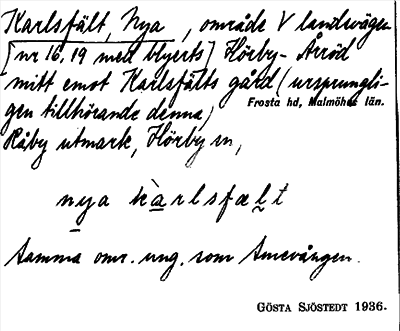 Karlsfält, Nya, område V landsvägen
[nr 16, 19 med blyerts] Hörby-Årröd
mitt emot Karlsfälts gård (ursprungli-
gen tillhörande denna)
Frosta hd, Malmöhus län.
Råby utmark, Hörby sn,
nya kàrlsfælt
Samma omr. ung. som Amevången.
GÖSTA SJÖSTEDT 1936.